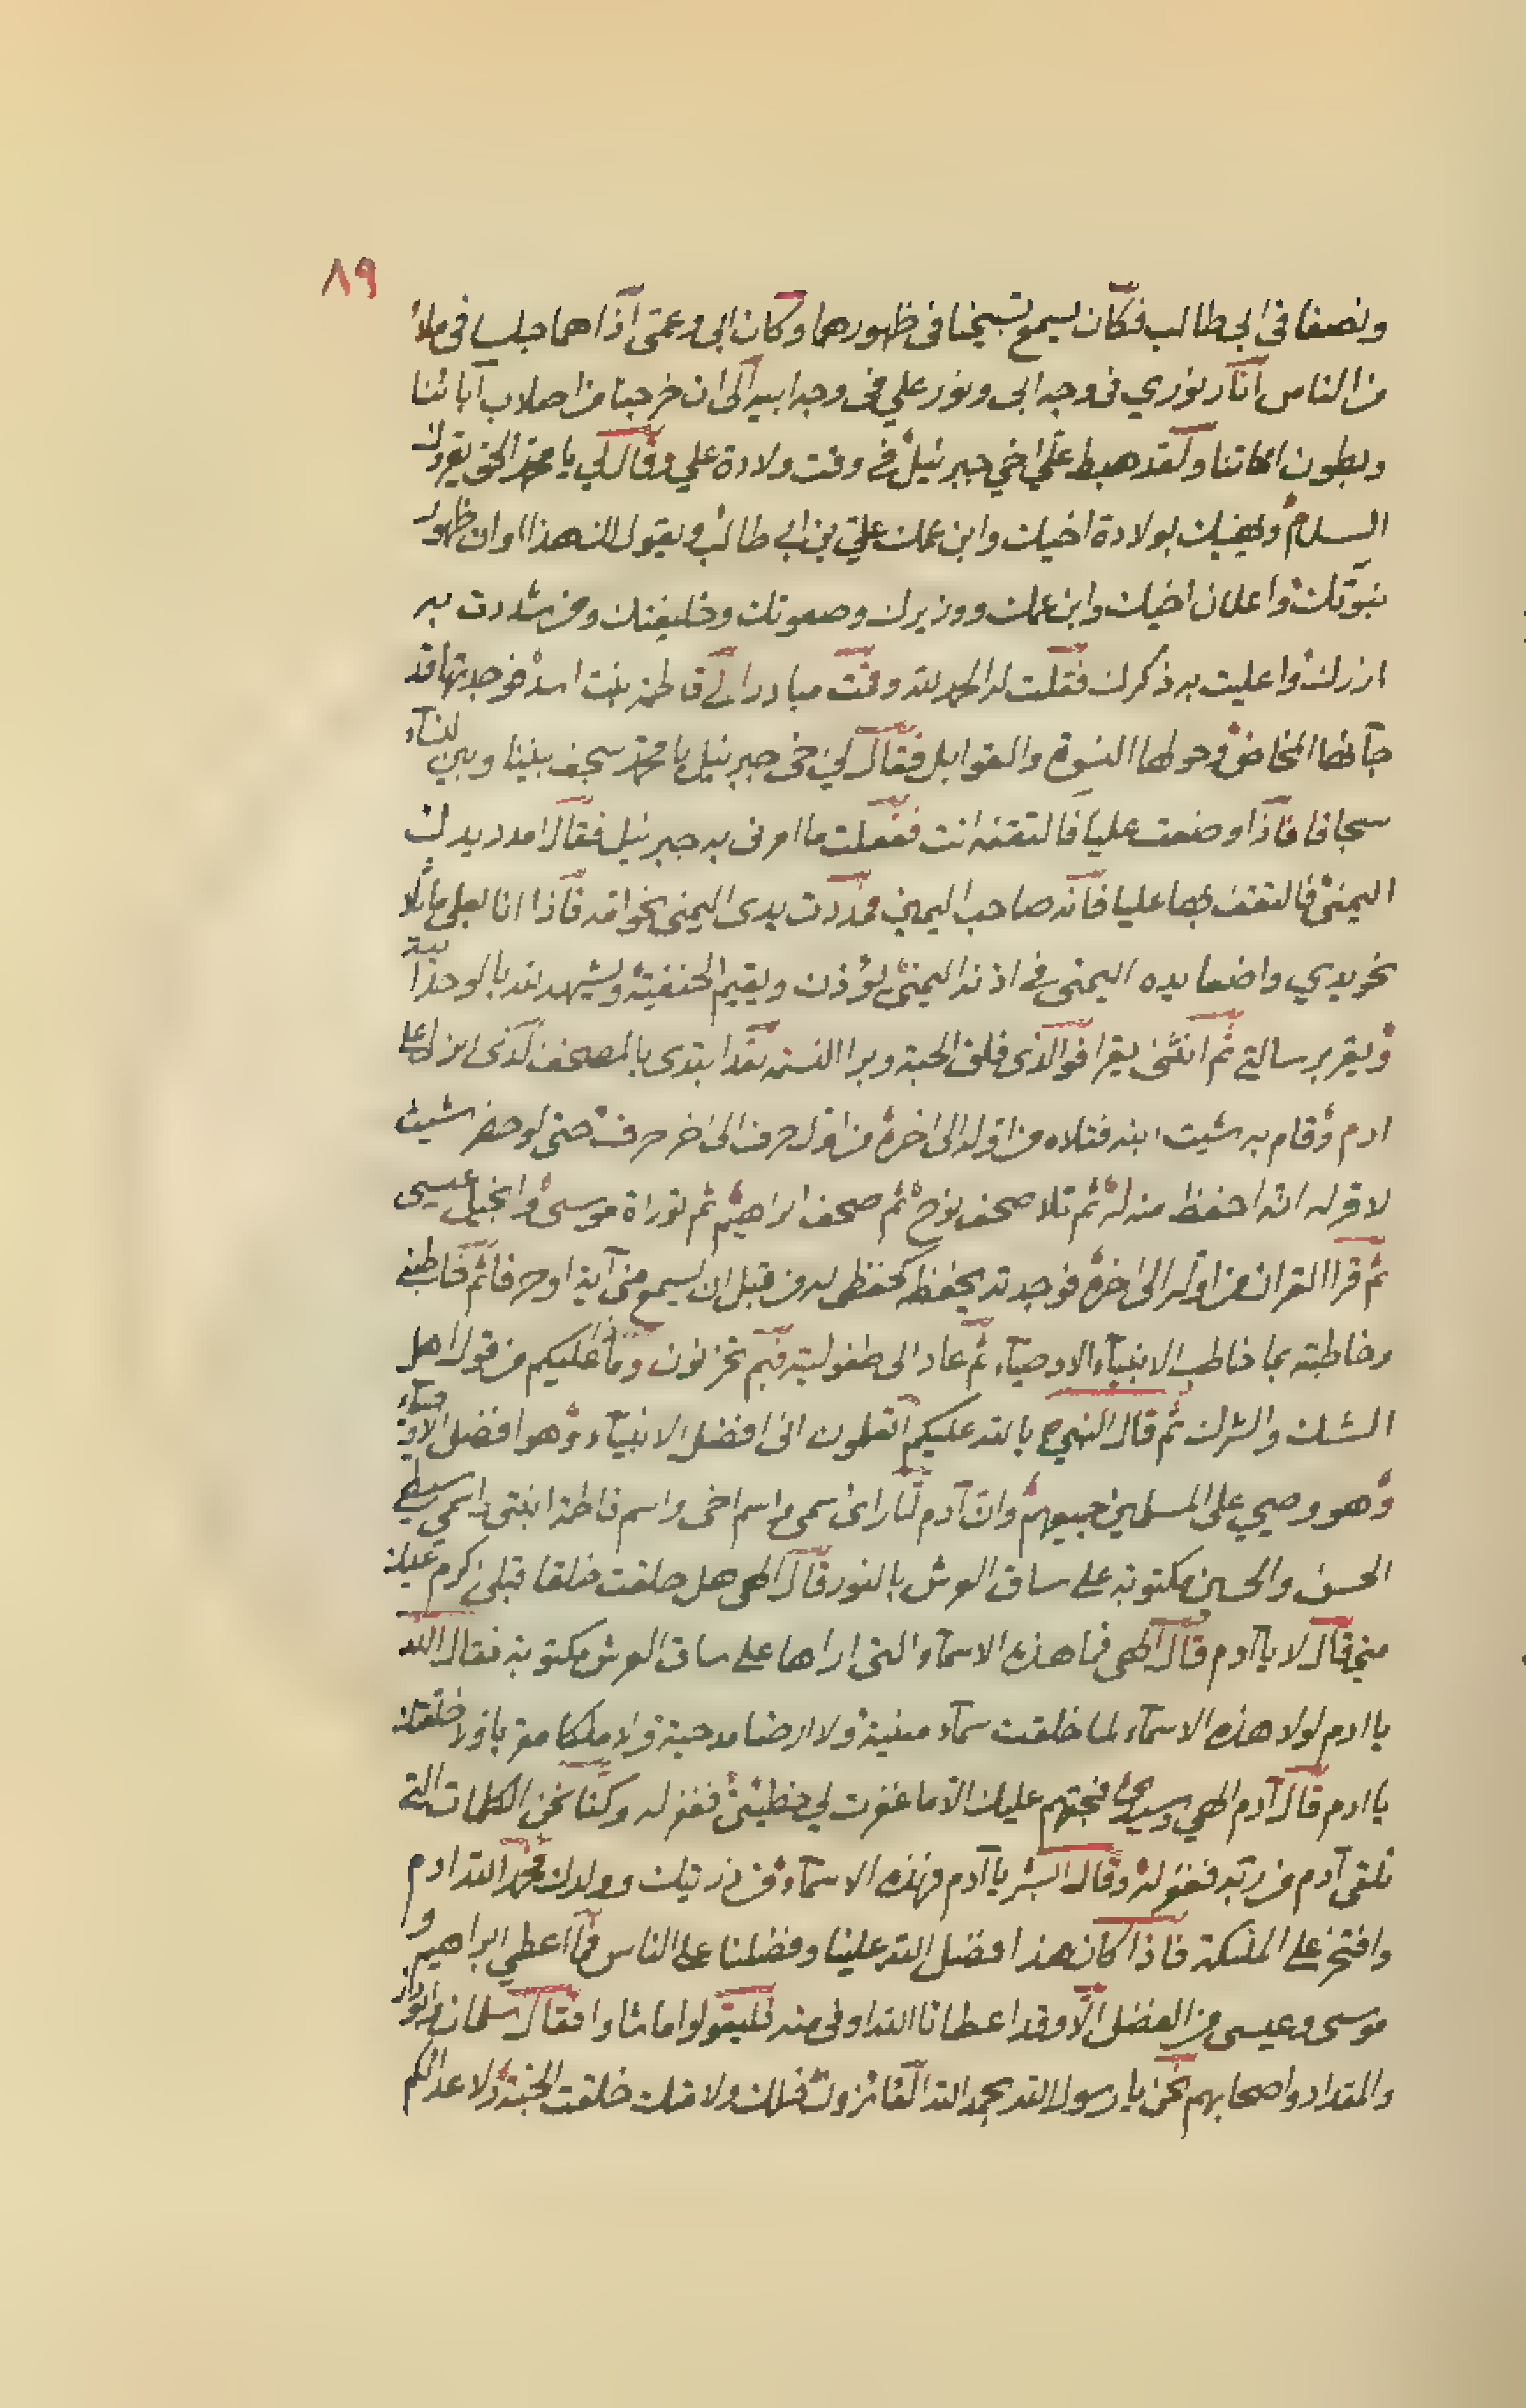 ٨٩
ونصفا فى ابى طالب فكان يسمع تسبيحنا فى ظهورهما وكان ابى وعمى اذا هما جلسا فى ملأ
من الناس انار نوري فى وجه ابى ونور علي فى وجه ابيه الى ان خرجنا من اصلاب آبائنا
وبطون امهاتنا ولقد هبط علي اخي جبرئيل فى وقت ولادة علي وقال لي يا محمد الحق يقرؤك
السلام ويهنيك بولادة اخيك وابن عمك علي بن ابى طالب ويقول لك هذا اوان ظهور
نبوتك واعلان اخيك وابن عمك ووزيرك وصفوتك وخليفتك ومن شددت به
ازرك واعليت به ذكرك فقلت له الحمد لله وقمت مبادرا الى فاطمة بنت اسد فوجدتها قد
جآئها المخاض وحولها النسوة والقوابل فقال لى اخى جبرئيل يا محمد سجف بيننا وبين النسآء
سجافا فاذا وضعت عليا فالتقفه انت ففعلت ما امرنى به جبرئيل فقال امدد يدك
اليمنى فالتقف بها عليا فانه صاحب اليمين فمددت يدى اليمنى نحو امه فاذا انا بعلى مائلا
نحو يدي واضعا يده اليمنى فى اذنه اليمنى يؤذن ويقيم الحنفية ويشهد لله بالوحدانية
ويقر برسالتي ثم انثنى يقرا فوالذى فلق الحبة وبرا النسمة لقد ابتدى بالصحف الذى انزل على
ادم وقام به شيث ابنه فتلاه من اوله الى اخره من اول حرف الى اخر حرف حتى لو حضر شيث
لاقر له انه احفظ منه له ثم تلا صحف نوح ثم صحف ابراهيم ثم توراة موسى وانجيل عيسى
ثم قرا القران من اوله الى اخره فوجدته يحفظه كحفظى له من قبل ان يسمع منى آية او حرفا ثم خاطبني
وخاطبته بما خاطب الانبيآء الاوصيآء ثم عاد الى طفوليته فبم تحزنون وماذا عليكم من قول اهل
الشك والشرك ثم قال النبي بالله عليكم اتعلمون انى افضل الانبيآء وهو افضل الاوصيآء
وهو وصيي على المسلمين جميعهم وان آدم لما راى اسمى واسم اخى واسم فاطمة ابنتى واسمي سبطي
الحسن والحسين مكتوبة على ساق العرش بالنور قال الهى هل خلقت خلقا قبلى اكرم عليك
مني قال لا يا آدم قال الهى فما هذه الاسمآء التى اراها على ساق العرش مكتوبة فقال الله
يا ادم لولا هذه الاسمآء لما خلقت سمآء مبنية ولا ارضا مدحية ولا ملكا مقربا ولا خلقتك
يا ادم قال آدم الهي وسيدي فبحقهم عليك الا ما غفرت لي خطيئتى فغفر له وكنا نحن الكلمات التى
تلقى آدم من ربه فغفر له وقال ابشر يا آدم فهذه الاسمآء من ذريتك وولدك فحمد الله ادم
وافتخر على الملئكة فاذا كان هذا فضل الله علينا وفضلنا على الناس فما اعطي ابراهيم و
موسى وعيسى من الفضل الا وقد اعطانا الله اوفى منه فليقولوا ما شاءوا فقال سلمان وابوذر
والمقداد واصحابهم نحن يا رسول الله بحمد الله الفائزون فلك ولامتك خلقت الجنة ولاعدائكم